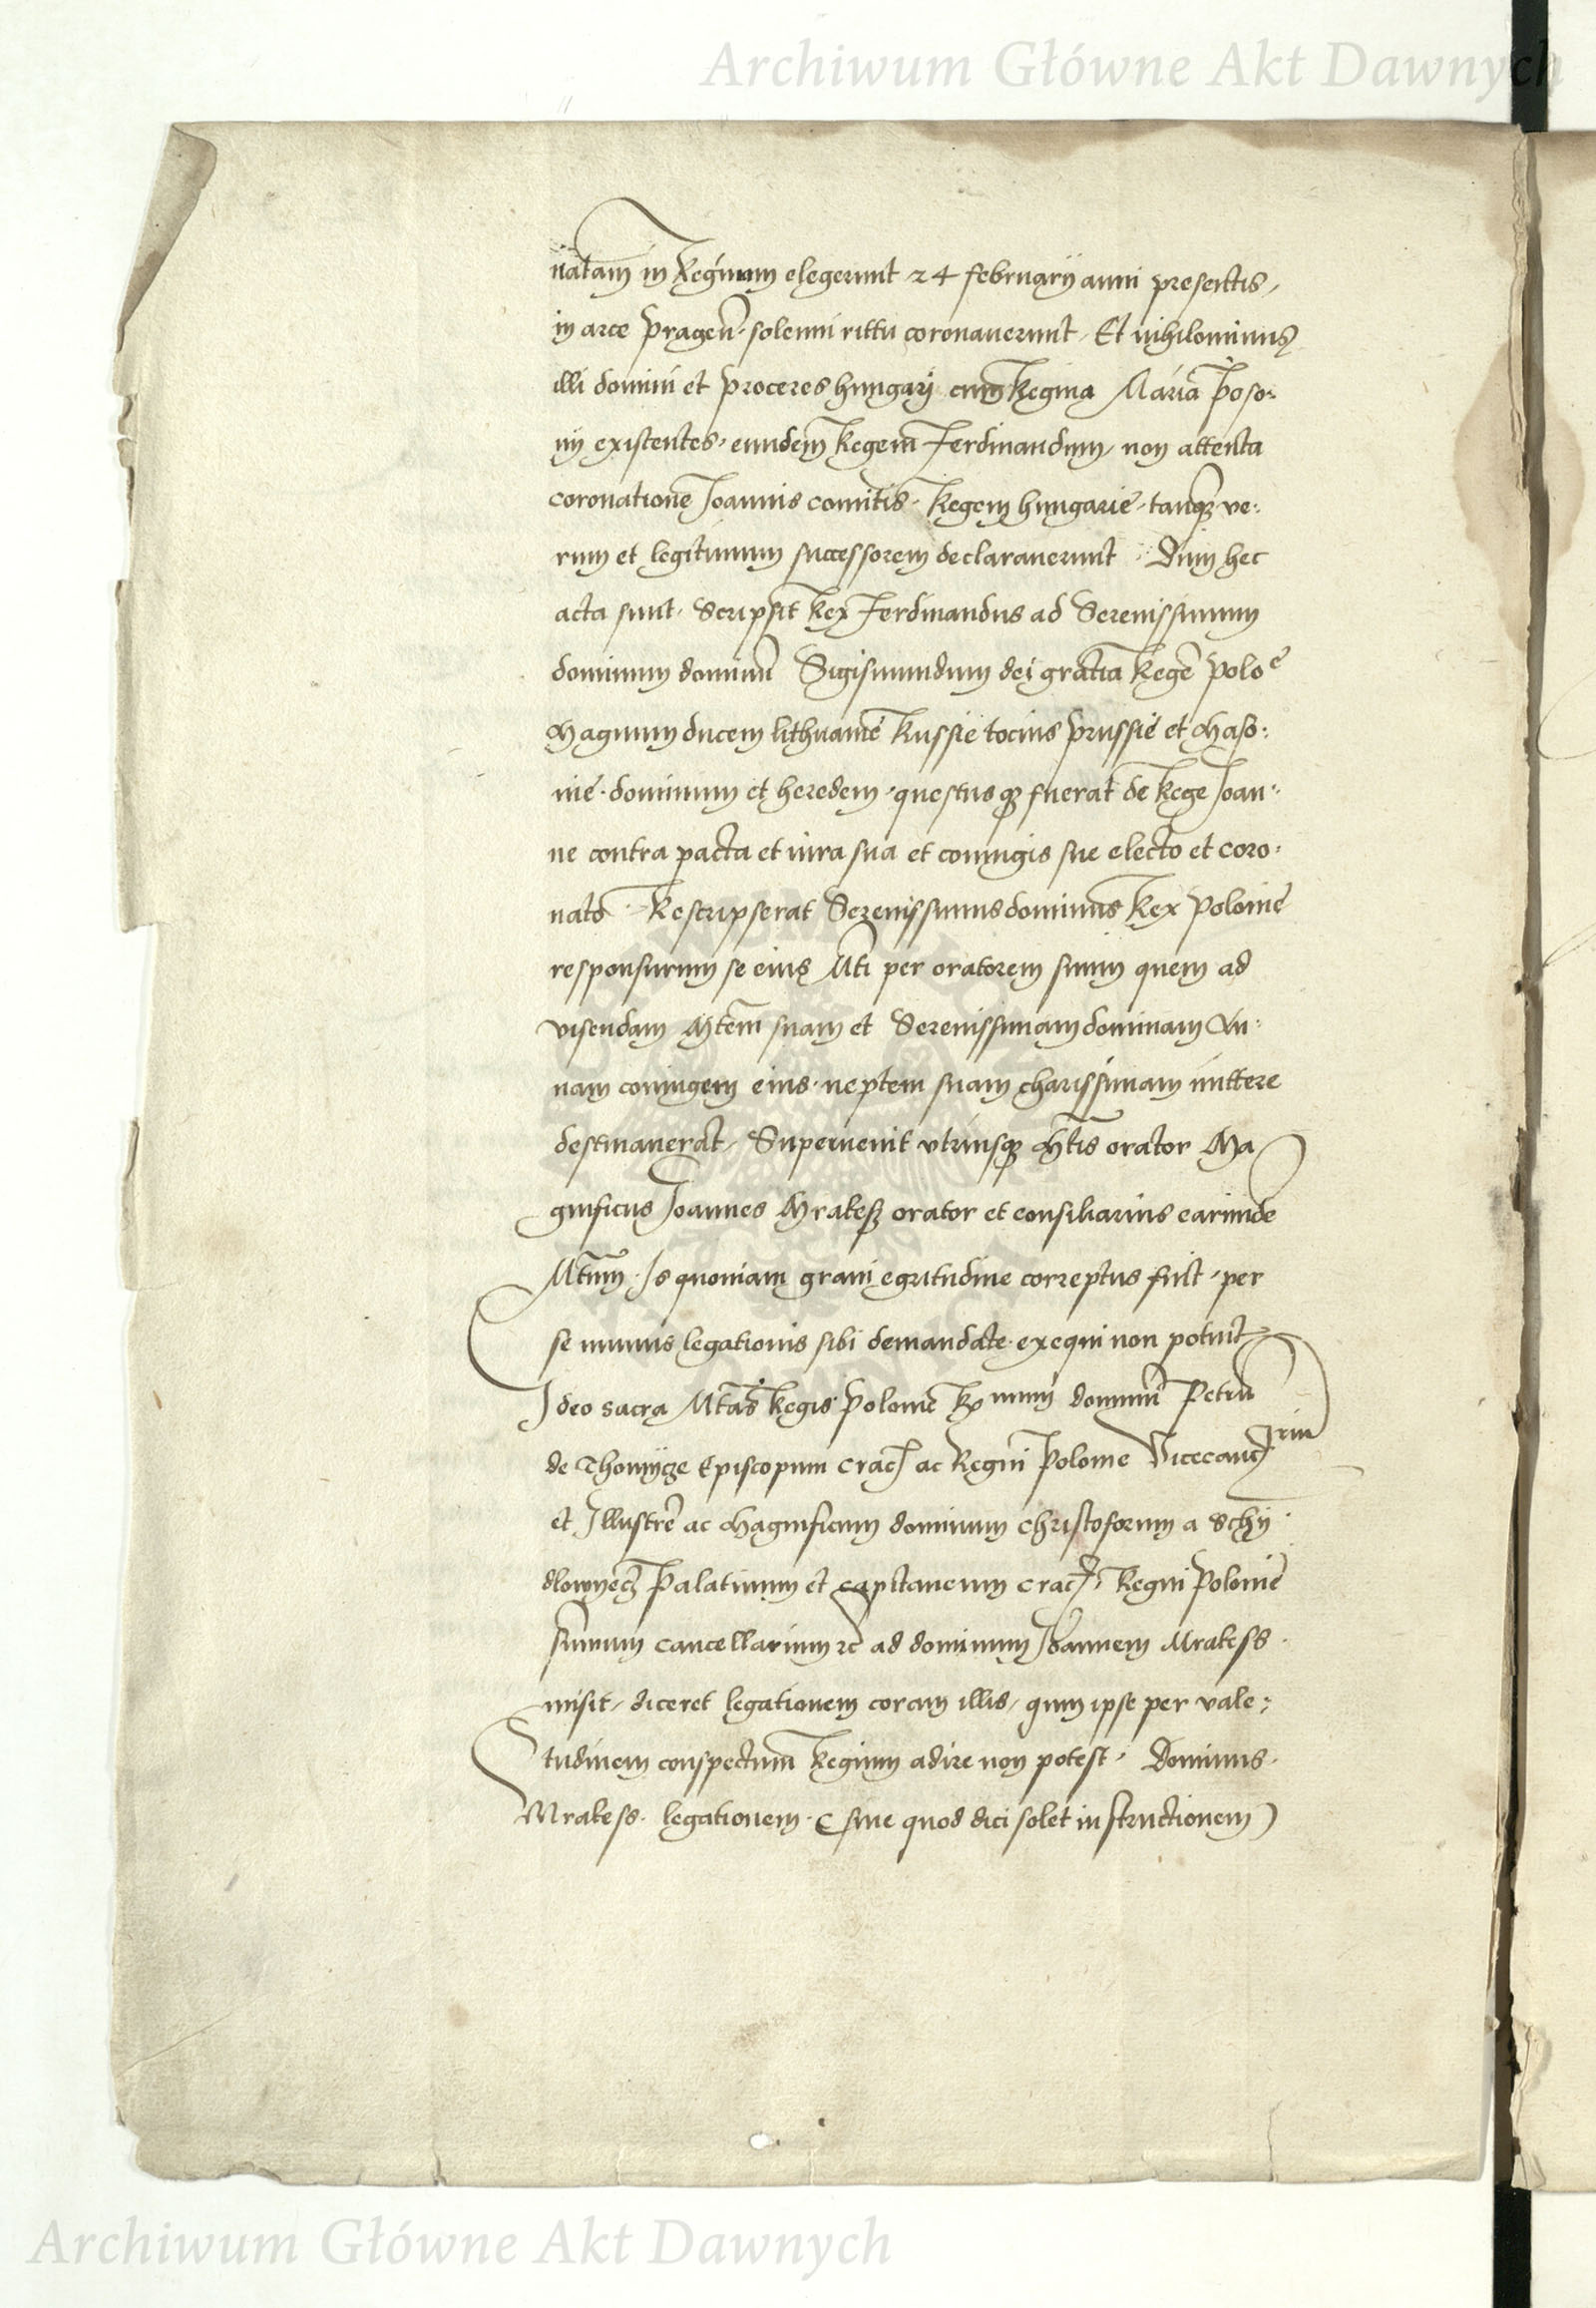 Archiwum Główne Akt Dawnych
natam in Reginam elegerunt 24 februarÿ anni presentis,
in arce Pragen̄. solenni rittu coronauerunt. Et nihilominus
illi domini et proceres hungarj cum Regina Maria Poso:
nij existentes, eundem Regem Ferdinandum, non attenta
coronatione Joannis comitis, Regem hungarie, tanqȝ ve:
rum et legitimum successorem declarauerunt. Dum hec
acta sunt, Scripsit Rex Ferdinandus ad Serenissimum
dominum dominū Sigismundum dei gratia Regē Poloe
Magnum ducem lithuanie Russie tocius Prussie et Maso:
uie. dominum et heredem, questusqȝ fuerat de Rege Joan:
ne contra pacta et iura sua et coniugis sue electo et coro:
nato. Rescripserat Serenissimus dominus Rex Polonie
responsurum se eius Mti per oratorem suum quem ad
visendam Mtem suam et Serenissimam dominam An:
nam coniugem eius, neptem suam charissimam mittere
destinauerat, Superuenit vtriusqȝ Mtis orator Ma
gnificus Joannes Mrakeß orator et consiliarius earunde
Mtum. Is quoniam graui egritudine correptus fuit, per
se munus legationis sibi demandate exequi non potuit
Ideo sacra Mtas Regis Polonie Rx̄mum dominū Petrū
de Thomÿcze Episcopum Crac̄ ac Regni Polonie Vicecanc̄rium
et Illustrē ac Magnificum dominum Christoforum a Schÿ
dlowyecz Palatinum et capitaneum Crac̄, Regni Polonie
summum cancellarium ꝛc̄ ad dominum Joannem Mrakess.
misit, diceret legationem coram illis, quum ipse per vale:
tudinem conspectum Regium adire non potest, Dominus.
Mrakess. legationem. (siue quod dici solet instructionem)
Archiwum Główne Akt Dawnych